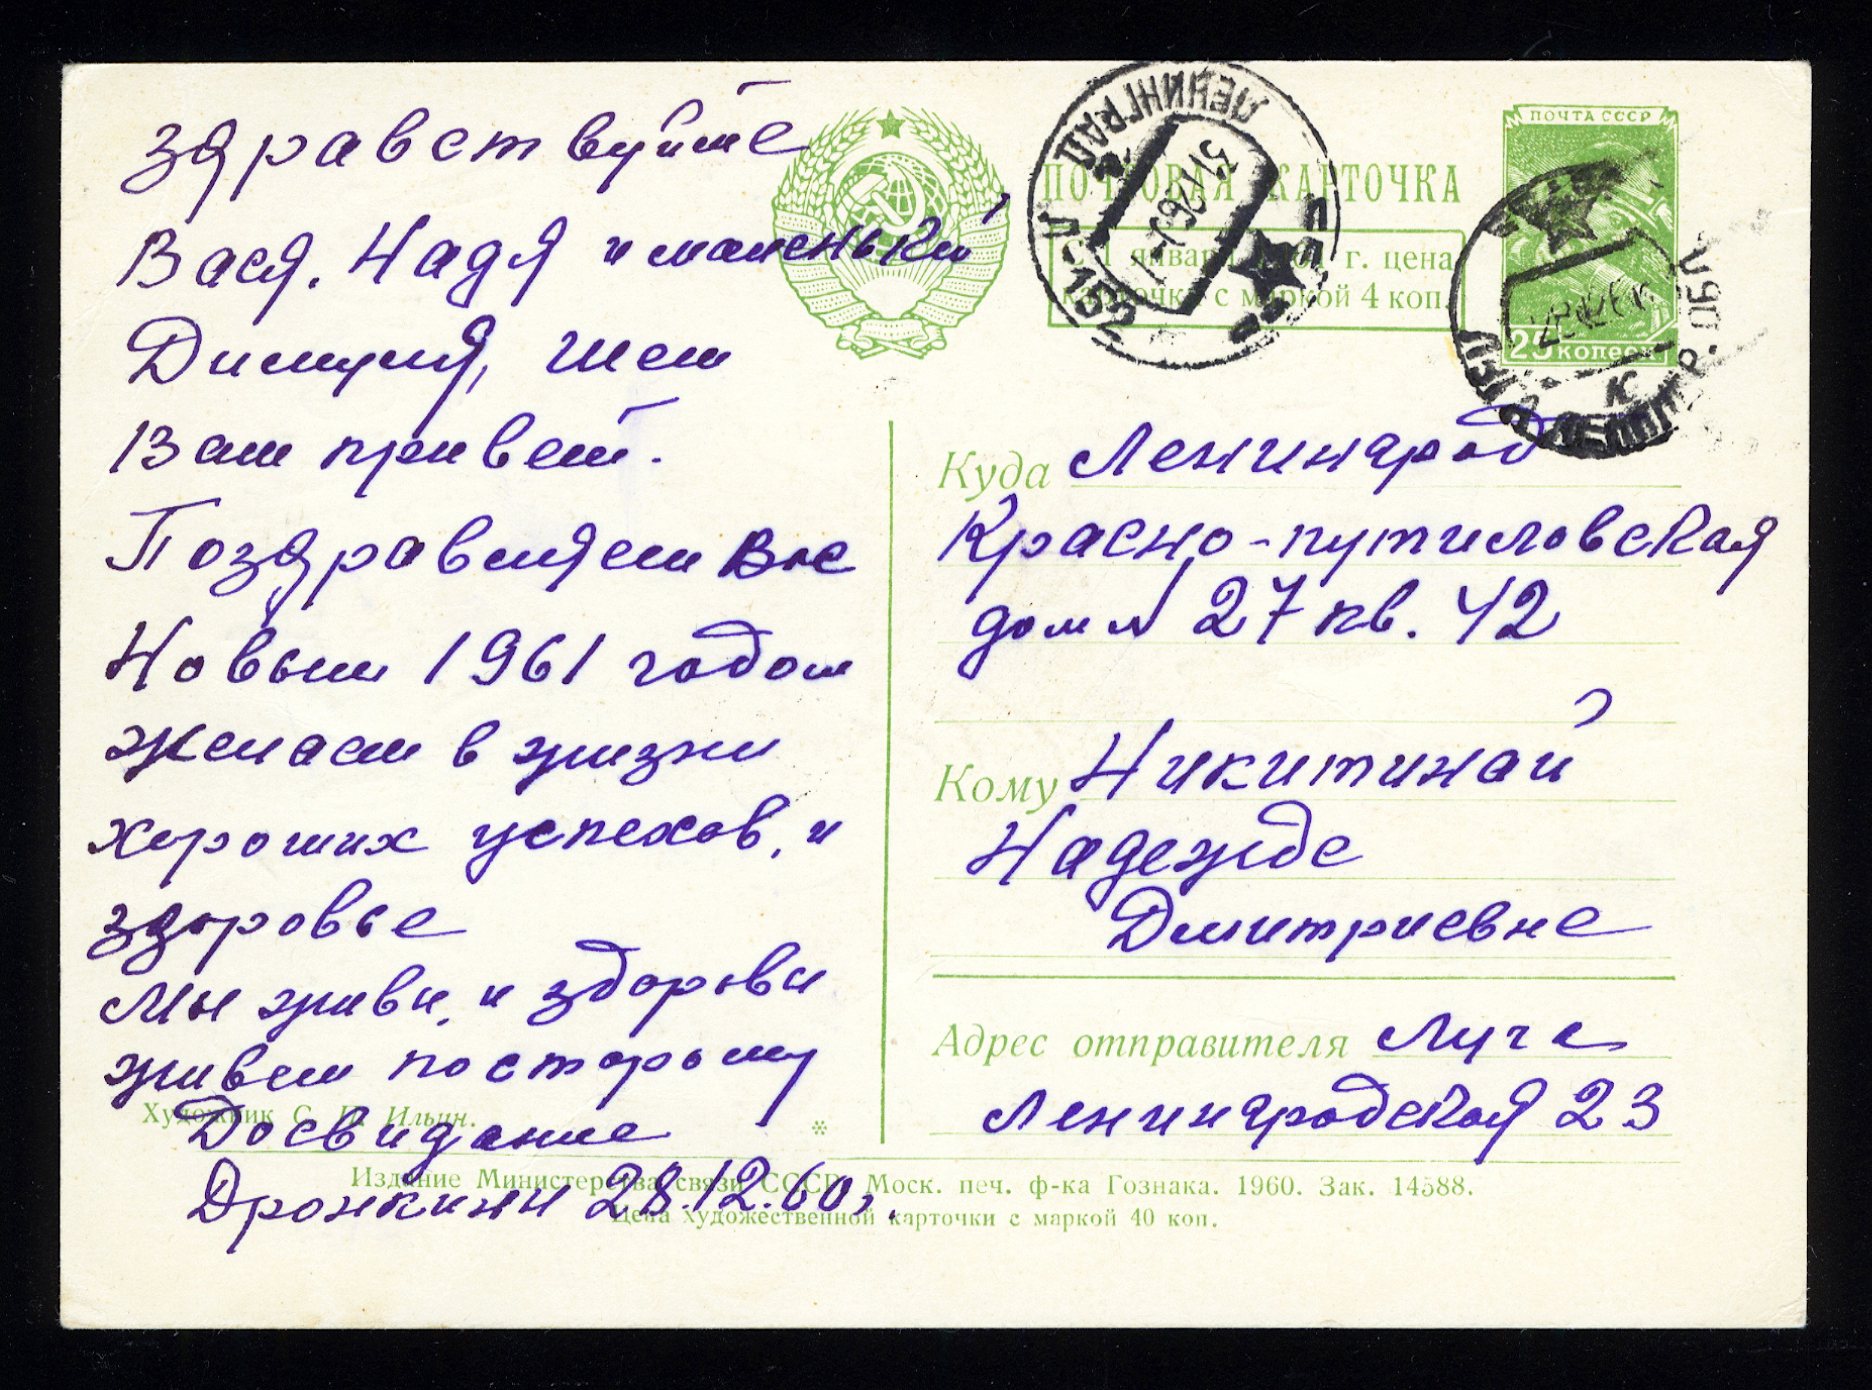 Здравствуйте
Вася, Надя и маленький
Димуля, шем
Вам привет.
Поздравляем Вас
Новым 1961 годом
желаем в жизни
хороших успехов, и
здоровье
Мы живы, и здоровы
живем постарому
Досвидание
Дронкины 28.12.60,.
Художник С. П. Ильин.
ПОЧТОВАЯ КАРТОЧКА
С 1 января 1961 г. цена
карточки с маркой 4 коп.
ПОЧТА СССР
25 копеек
ЛЕНИНГРАД
31 12 60
К-152
ЛУГА ЛЕНИНГР. ОБЛ.
Куда Ленинград
Красно-путиловская
дом № 27 кв. 42
Кому Никитинай
Надежде
Дмитриевне
Адрес отправителя Луга
Ленинградская 23
*
Издание Министерства связи СССР. Моск. печ. ф-ка Гознака. 1960. Зак. 14588.
Цена художественной карточки с маркой 40 коп.